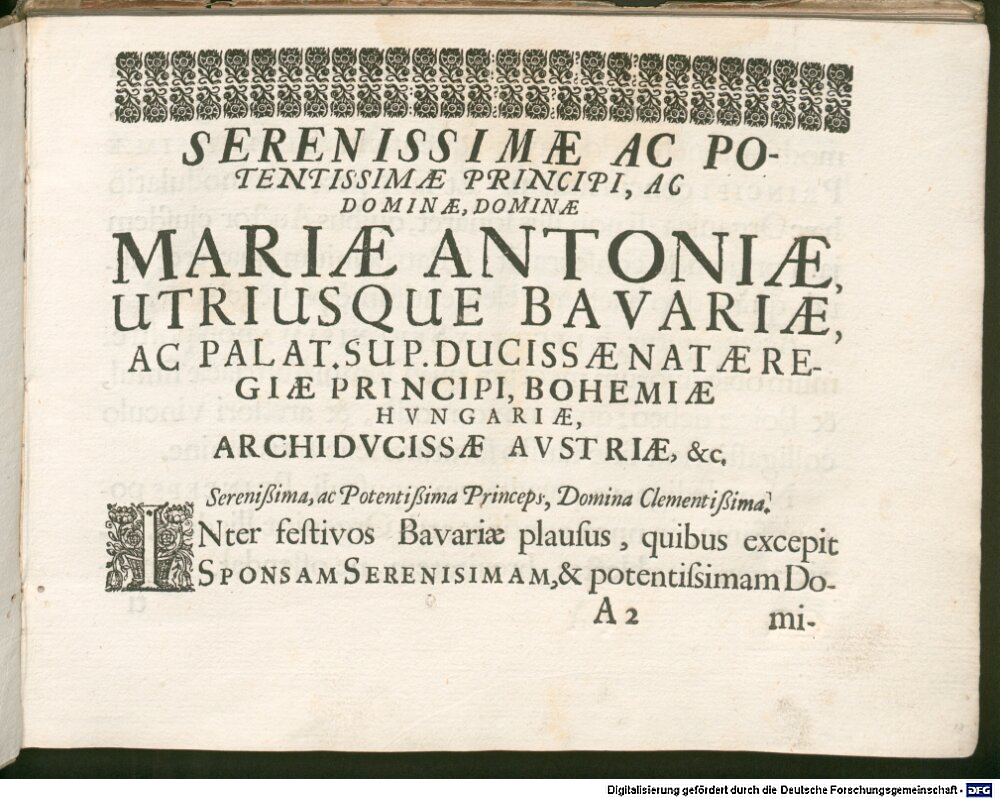 SERENISSIMÆ AC PO-
TENTISSIMÆ PRINCIPI, AC
DOMINÆ, DOMINÆ
MARIÆ ANTONIÆ,
UTRIUSQUE BAVARIÆ,
AC PALAT. SUP. DUCISSÆ NATÆ RE-
GIÆ PRINCIPI, BOHEMIÆ
HVNGARIÆ,
ARCHIDVCISSÆ AVSTRIÆ, &c.
Sereniſſima, ac Potentiſſima Princeps, Domina Clementiſſima.
INter feſtivos Bavariæ plauſus, quibus excepit
SPONSAM SERENISIMAM, & potentiſſimam Do-
A 2 mi-
Digitalisierung gefördert durch die Deutsche Forschungsgemeinschaft - DFG